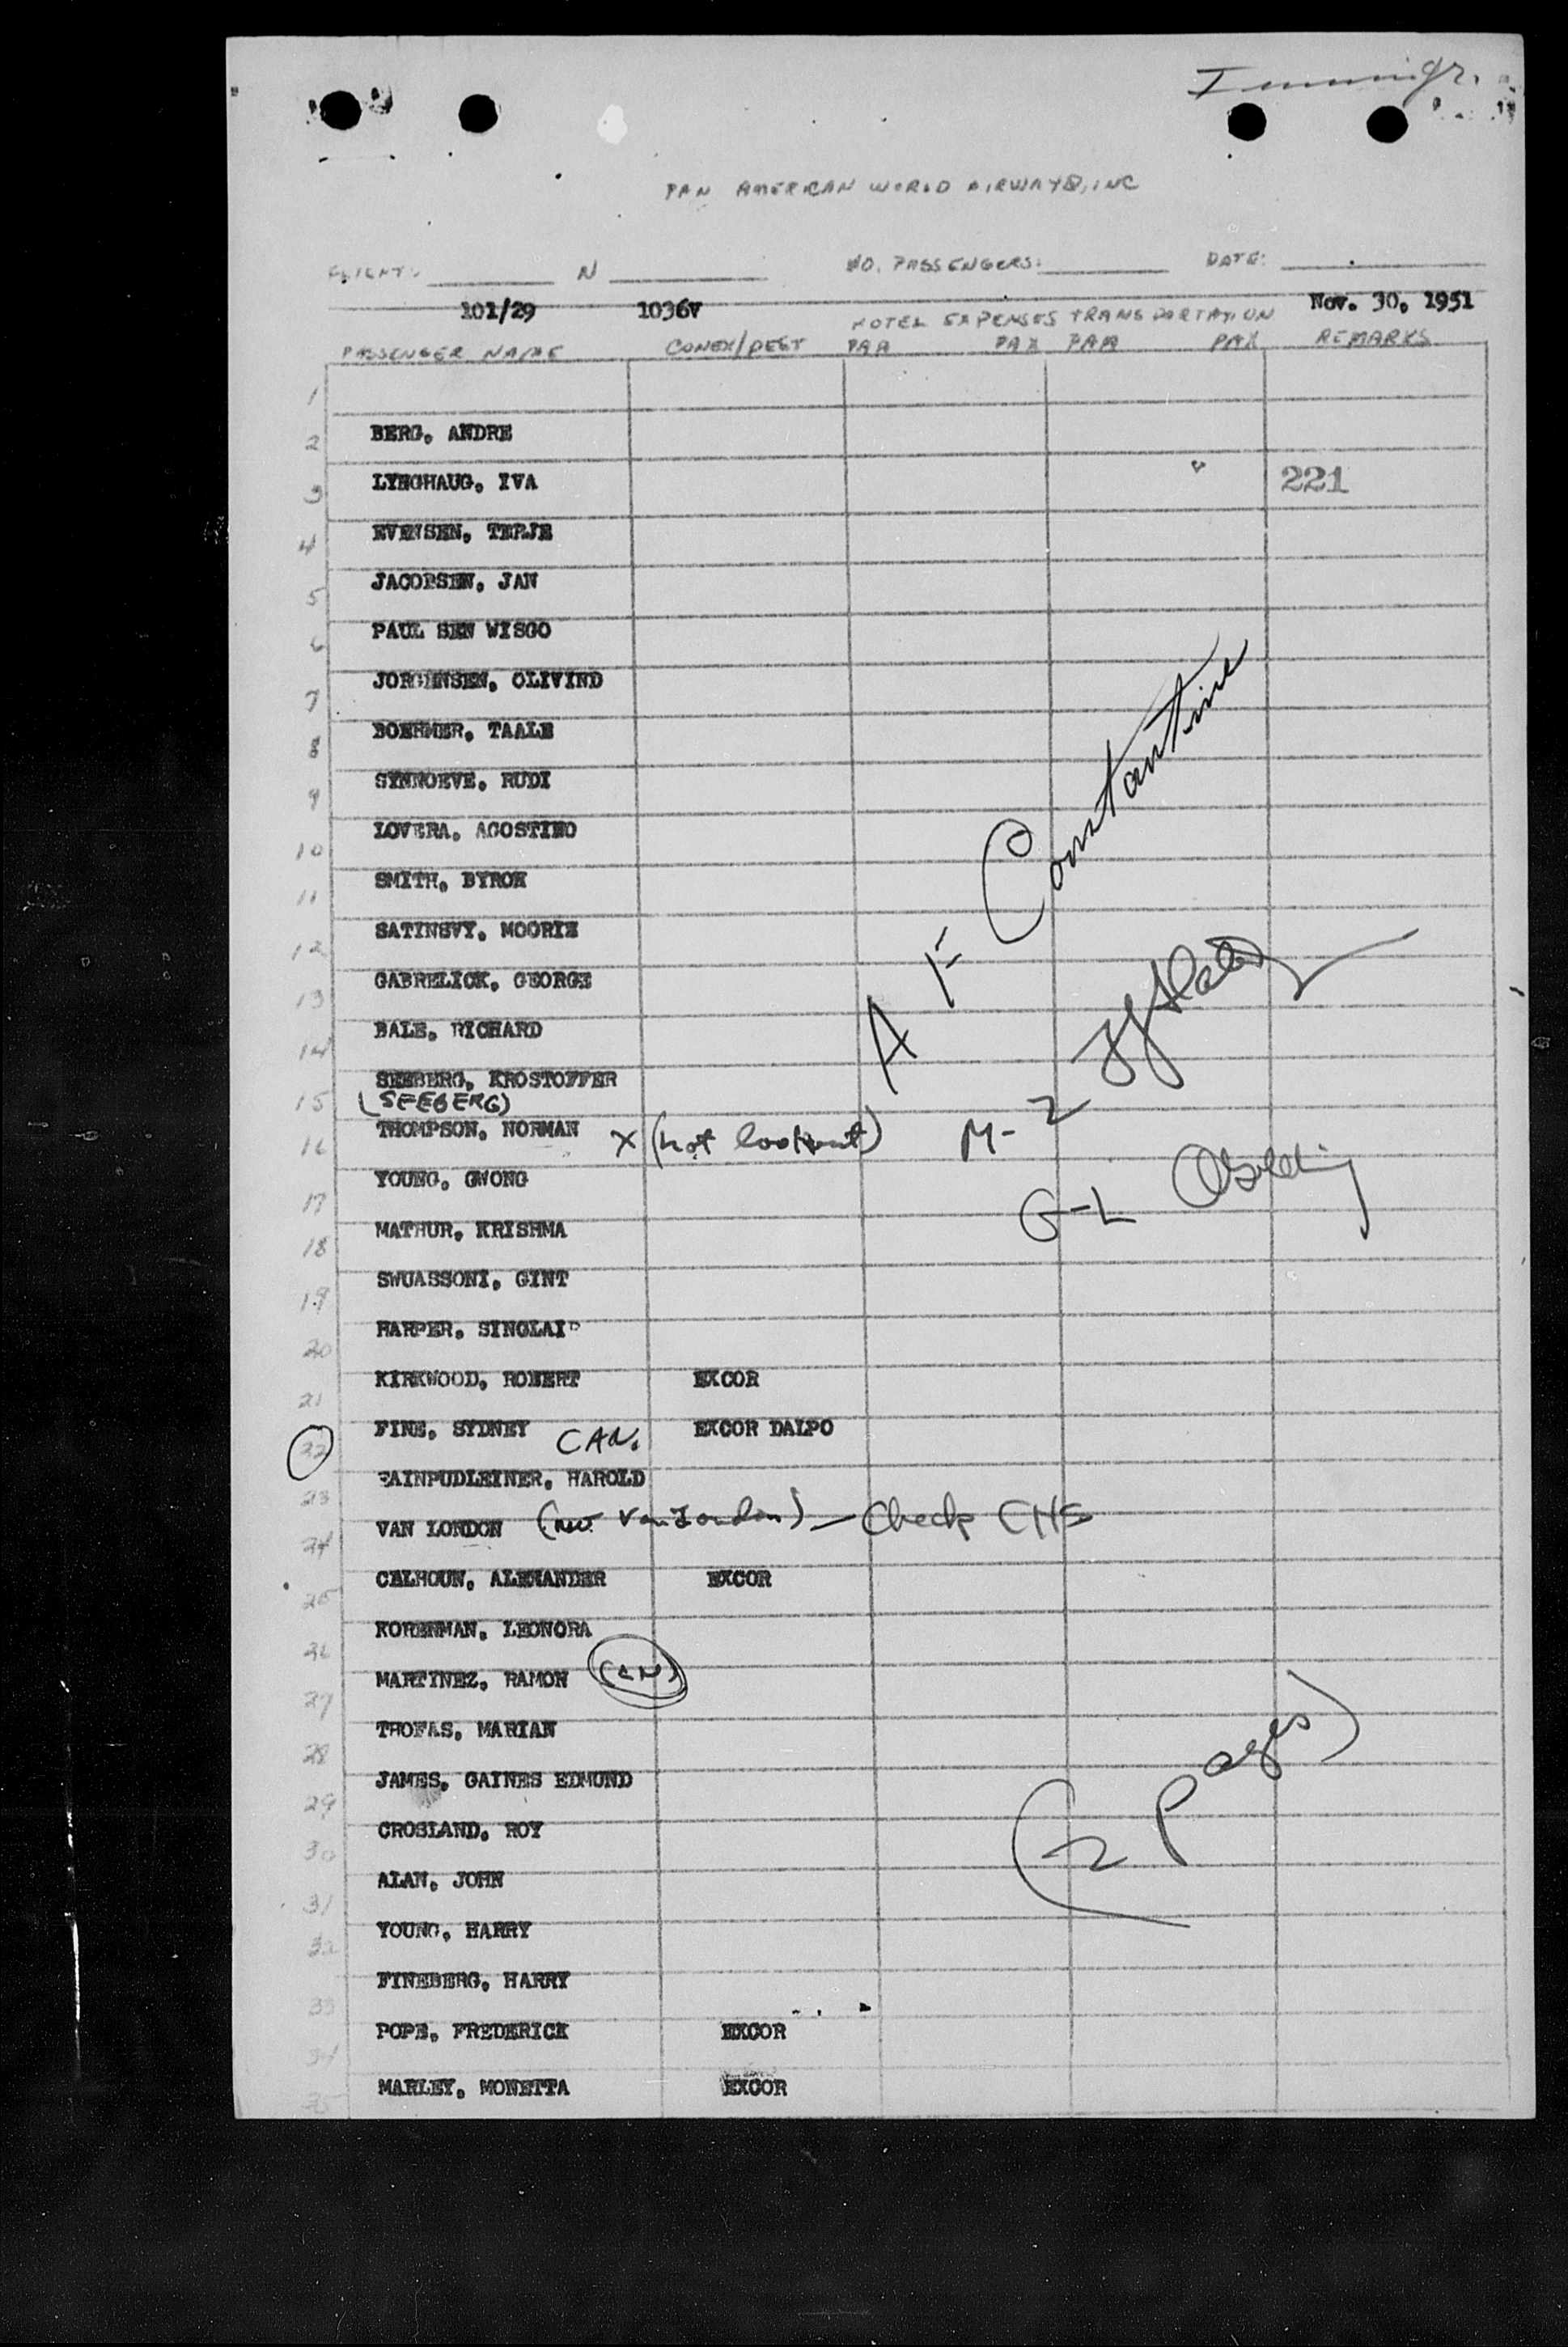 Immigr.
PAN AMERICAN WORLD AIRWAYS, INC
FLIGHT: N NO. PASSENGERS: DATE:
101/29 1036V Nov. 30, 1951
HOTEL EXPENSES TRANSPORTATION
PASSENGER NAME CONEX/DEST PAA PAX PAA PAX REMARKS
1
2 BERG, ANDRE
3 LYNGHAUG, IVA 221
4 EVENSEN, TERJE
5 JACOBSEN, JAN
6 PAUL SEN WISGO
7 JORGENSEN, OLIVIND
8 BOEHMER, TAALE
9 SYNNOEVE, RUDI
10 LOVERA, AGOSTINO
11 SMITH, BYRON
12 SATINSVY, MOORIE
13 GABRELICK, GEORGE
14 BALE, RICHARD
15 SEEBERG, KROSTOFFER
(SEEBERG)
16 THOMPSON, NORMAN X (not lookout)
17 YOUNG, GWONG
18 MATHUR, KRISHMA
19 SWUASSONI, GINT
20 HARPER, SINGLAIR
21 KIRKWOOD, ROBERT EXCOR
22 FINE, SYDNEY CAN. EXCOR DALPO
23 AINPUDLEINER, HAROLD
24 VAN LONDON ( Van London) - Check CHS
25 CALHOUN, ALEXANDER EXCOR
26 KORENMAN, LEONORA
27 MARTINEZ, RAMON (CAN)
28 THOMAS, MARIAN
29 JAMES, GAINES EDMUND
30 CROSLAND, ROY
31 ALAN, JOHN
32 YOUNG, HARRY
33 FINEBERG, HARRY
34 POPE, FREDERICK EXCOR
35 MARLEY, MONETTA EXCOR
A F Constantine
M-2
G-L
(2 Pages)